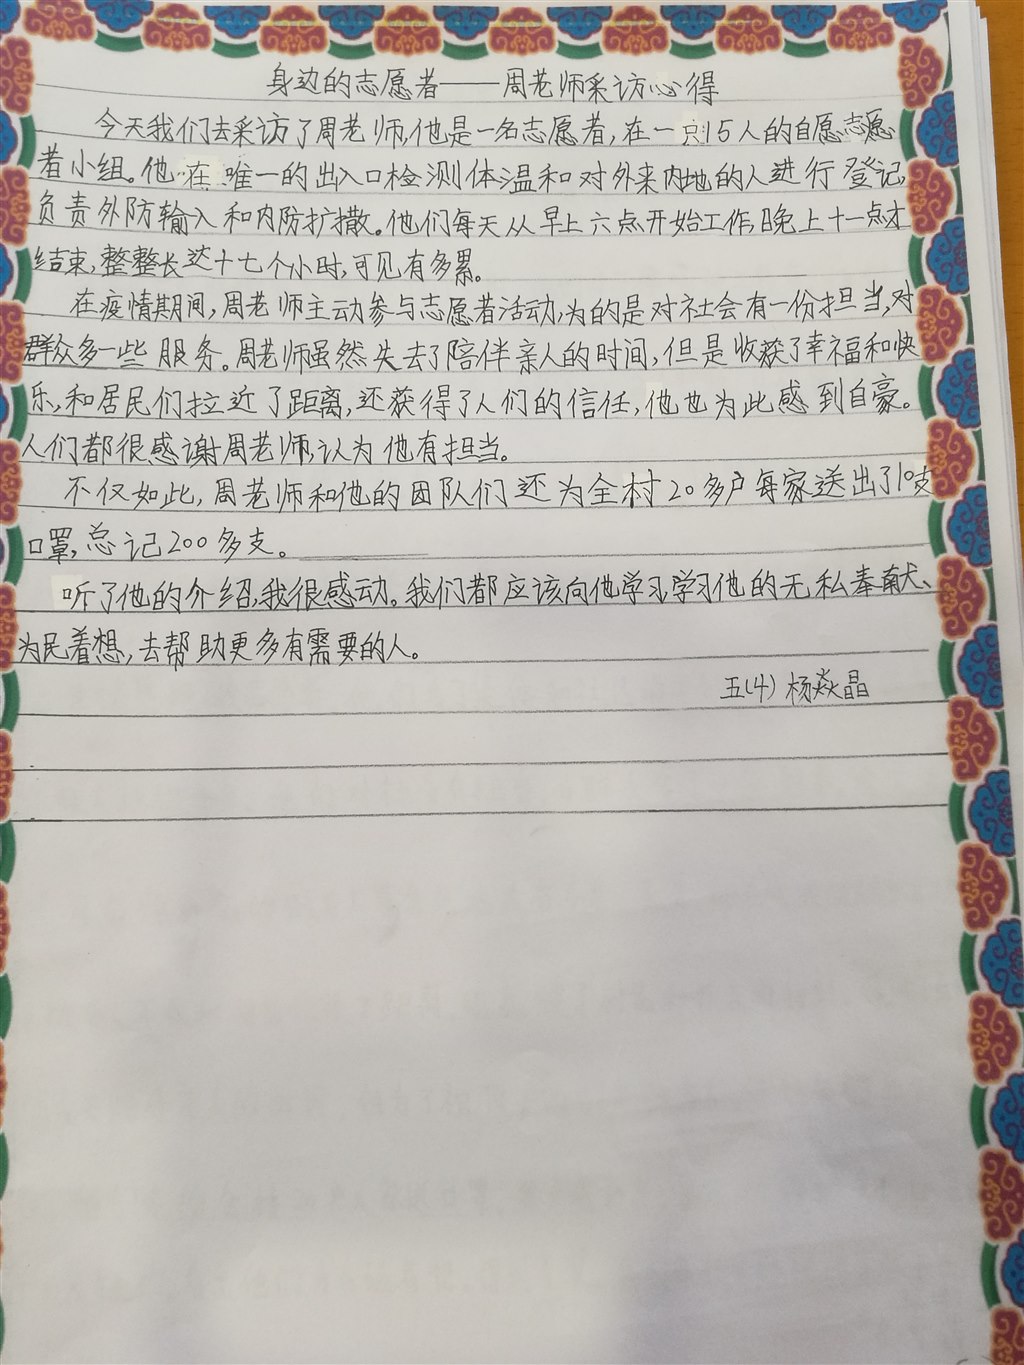 身边的志愿者——周老师采访心得
今天我们去采访了周老师,他是一名志愿者,在一只15人的自愿志愿
者小组。他在唯一的出入口检测体温和对外来内地的人进行登记,
负责外防输入和内防扩撒。他们每天从早上六点开始工作,晚上十一点才
结束,整整长达十七个小时,可见有多累。
在疫情期间,周老师主动参与志愿者活动,为的是对社会有一份担当,对
群众多一些服务。周老师虽然失去了陪伴亲人的时间,但是收获了幸福和快
乐,和居民们拉近了距离,还获得了人们的信任,他也为此感到自豪。
人们都很感谢周老师,认为他有担当。
不仅如此,周老师和他的团队们还为全村20多户每家送出了10支
口罩,总记200多支。
听了他的介绍,我很感动。我们都应该向他学习,学习他的无私奉献、
为民着想,去帮助更多有需要的人。
五(4) 杨焱晶